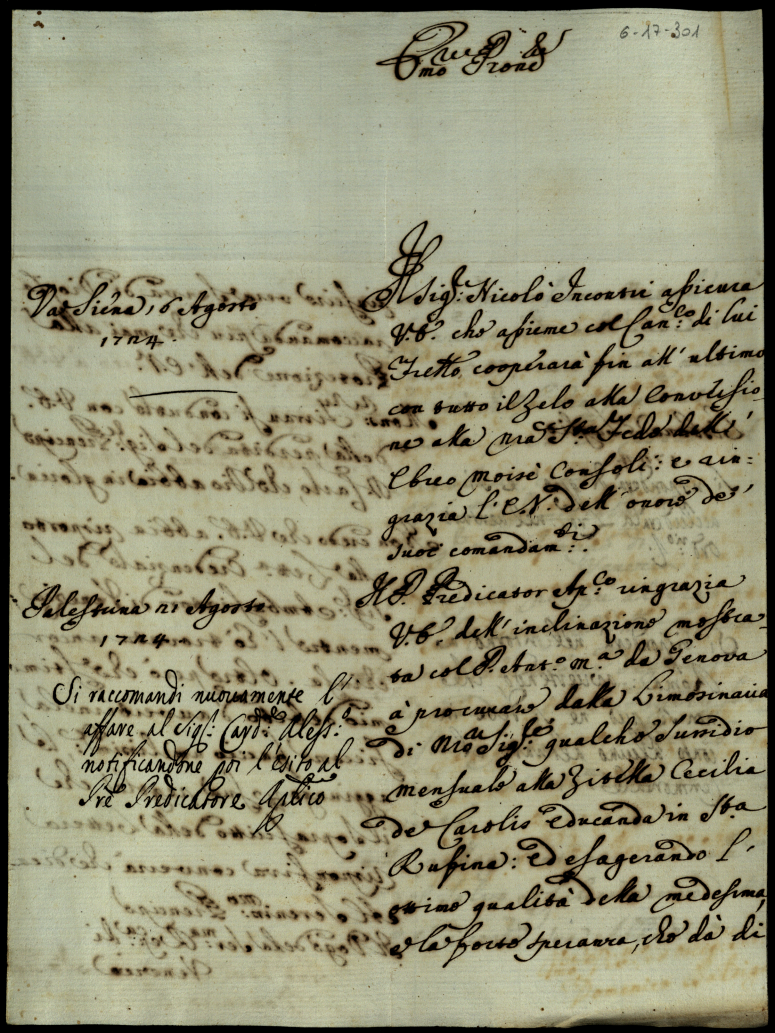 6-17-301
Em̃o Prone
Da Siena, 6 Agosto
1724.
Il Sig.r Nicolò Incontri assicura
V.E. che assieme col Can.co di lui
Fretto cooperarà fin all'ultimo
con tutto il Zelo alla Conversio-
ne alla nr̃a S.ta Fede dell'
Ebreo Moisè Consoli: e rin-
grazia l'E.V. dell'onore de'
suoi comandam.ti.
Palestrina 21 Agosto
1724
Il P. Predicator Ap.co ringrazia
V.E. dell'inclinazione mostra-
ta col P. Ant.o M.a da Genova
à procurare dalla Limosinaria
di Nrõ Sig.re qualche sussidio
mensuale alla Zitella Cecilia
de Carolis educanda in S.ta
Rufina: ed esagerando l'
ottime qualità della medesima,
e la forte speranza, che dà di
Si raccomandi nuovamente l'
affare al Sig.r Card.le Aless.o
notificandone poi l'esito al
Pr̃e Predicatore Aplico